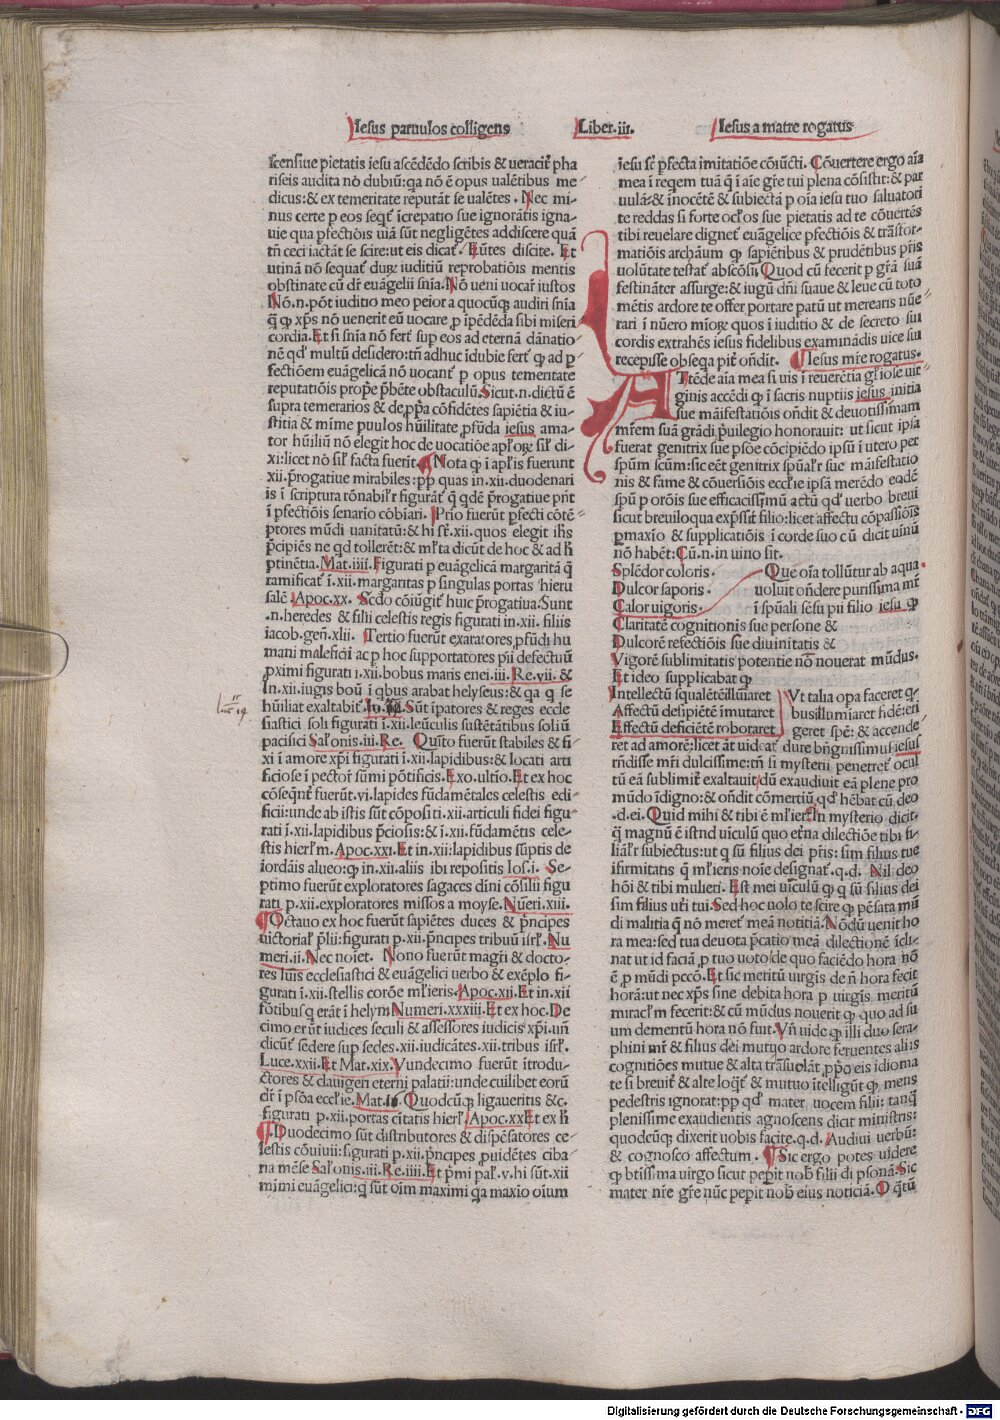 Iesus paruulos colligens
Liber .iii.
Iesus a matre rogatus
scensiue pietatis iesu ascēdēdo scribis & ueraciť pha
riseis audita nō dubiū: qa nō ē opus ualētibus me
dicus: & ex temeritate reputāt se ualētes. Nec mi
nus certe p eos seqť īcrepatio sue ignorātis igna-
uie qua pfectiōis uiā sūt negligētes addiscere quā
tñ ceci iactāt se scire: ut eis dicať. Eūtes discite. Et
utinā nō sequať duꝝ iuditiū reprobatiōis mentis
obstinate cū dř euāgelii sñia. Nō ueni uocař iustos
Nō.n. pōt iuditio meo peior a quocūꝗ audiri sñia
q̄ ꝙ xp̄s nō uenerit eū uocare p īpēdēda sibi miseri
cordia. Et si sñia nō ferť sup eos ad eternā dānatio-
nē qď multū desidero: tñ adhuc īdubie ferť ꝙ ad p
fectiōem euāgelicā nō uocant̄ p opus temeritate
reputatiōis prop̄e p̄bēte obstaculū. Sicut.n. dictū ē
supra temerarios & de ꝓp̄a cōfidētes sapiētia & iu-
stitia & mīme puulos hūilitate ꝓfūda iesus ama-
tor hūiliū nō elegit hoc de uocatiōe apl̄oꝝ sil̄ di-
xi: licet nō sil̄ facta fuerit. Nota ꝙ ī apl̄is fuerunt
xii. p̄rogatiue mirabiles: pp̄ quas in.xii. duodenari
is ī scriptura rōnabil̄r figurāť q̄ qdē p̄rogatiue p̄ñt
ī pfectiōis senario cōbiari. Prīo fuerūt pfecti cōtē-
ptores mūdi uanitatū: & hi sť .xii. quos elegit ihs̄
p̄cipiēs ne qd tollerēt: & ml̄ta dicūt de hoc & ad h̄
ptinētia. Mat. iiii. Figurati p euāgelicā margaritā q̄
ramificať ī.xii. margaritas p singulas portas hieru
salē. Apoc. xx. Scdo cōiūgiť huic p̄rogatiua. Sunt
.n. heredes & filii celestis regis figurati in.xii. filiis
iacob. geñ. xlii. Tertio fuerūt exaratores ꝓfūdi hu
mani maleficii ac p hoc supportatores pii defectuū
ꝓximi figurati ī.xii. bobus maris enei. iii. Re. vii. &
In.xii. iugis boū ī qbus arabat helyseus: & qa q se
hūiliat exaltabiť. Sūt īpatores & reges eccle
siastici soli figurati ī.xii. leūculis sustētātibus soliū
pacifici Salōnis. iii. Re. Quīto fuerūt stabiles & fi
xi ī amore xp̄i figurati ī.xii. lapidibus: & locati arti
ficiose ī pectoř sūmi pōtificis. Exo. ultīo. Et ex hoc
cōseqñť fuerūt. vi. lapides fūdamētales celestis edi-
ficii: unde ab istis sūt cōpositi .xii. articuli fidei figu-
rati ī.xii. lapidibus p̄ciosis: & ī.xii. fūdamētis cele-
stis hierl̄m. Apoc. xxi. Et in.xii: lapidibus sūptis de
iordāis alueo: ꝙ in.xii. aliis ibi repositis Ios. i. Se-
ptimo fuerūt exploratores sagaces diñi cōsilii figu
rati p.xii. exploratores missos a moyse. Nūeri. xiii.
Octauo ex hoc fuerūt sapiētes duces & p̄ncipes
uictorial̄ p̄lii: figurati p.xii. p̄ncipes tribuū isrl̄. Nu
meri. ii. Nec noīet. Nono fuerunt magr̄i & docto-
res luis ecclesiastici & euāgelici uerbo & exēplo fi-
gurati ī.xii. stellis corōe ml̄ieris. Apoc. xii. Et in.xii
fōtibusq erāt ī helym Numeri. xxxiii. Et ex hoc. De
cimo erūt iudices seculi & assessores iudicis xp̄i. uñ
dicūť sedere sup sedes. xii. iudicātes. xii. tribus isrl̄.
Luce. xxii. Et Mat. xix. Vundecimo fuerūt ītrodu-
ctores & clauigeri eterni palatii: unde cuilibet eorū
dř ī psōa eccl̄ie. Mat. Quodcūꝗ ligaueritis &c.
figurati p.xii. portas citatis hierl̄. Apoc. xx Et ex h̄
Duodecimo sūt distributores & dispēsatores ce-
lestis cōuiuii: figurati p.xii. p̄ncipes ꝓuidētes ciba-
ria mēse Salōnis. iii. Re. iiii. Et p̄mi pal̄. v. hi sūt. xii
mimi euāgelici: q sūt oīm maximi qa maxio oīum
iesu sť pfecta imitatiōe cōiūcti. Cōuertere ergo aīa
mea ī reqem tuā q̄ ī aīe gr̄e tui plena cōsistit: & par
uulā: & īnocētē & subiectā p oīa iesu tuo saluatori
te reddas si forte ocl̄os sue pietatis ad te cōuertēs
tibi reuelare dignet̄ euāgelice pfectiōis & trāsfor-
matiōis archāum ꝙ sapiētibus & prudētibus pr̄is
uolūtate testať abscōsū. Quod cū fecerit p gr̄ā suā
festināter assurge: & iugū dn̄i suaue & leue cū toto
mētis ardore te offer portare paťu ut merearis nūe-
rari ī nūero mīoꝝ quos ī iuditio & de secreto sui
cordis extrahēs iesus fidelibus examinādis uice sui
recepisse obseqa pit̄ oñdit. Iesus mr̄e rogatus.
ATtēde aīa mea si uis ī reuerētia gl̄iose uir-
ginis accēdi ꝙ ī sacris nuptiis iesus initia
sue māifestatiōis oñdit & deuotissimam
mr̄em suā grādi p̄uilegio honorauit: ut sicut ipsa
fuerat genitrix sue psōe cōcipiēdo ipsū ī utero per
spūm scūm: sic eēt genitrix spūal̄r sue māifestatio
nis & fame & cōuersiōis eccl̄ie ipsā merēdo eādē
spū p orōis sue efficacissīmū actū qd̄ uerbo breui
sicut breuiloqua exp̄ssit filio: licet affectu cōpassiōis
ꝓmaxio & supplicatiōis ī corde suo cū dicit uinū
nō habēt: Cū.n. in uino sit.
Splēdor coloris.
Dulcor saporis.
Calor uigoris.
Que oīa tollūtur ab aqua
uoluit oñdere purissima mř
ī spūali sēsu pii filio iesu ꝙ
Claritatē cognitionis sue persone &
Dulcorē refectiōis sue diuinitatis &
Vigorē sublimitatis potentie nō nouerat mūdus.
Et ideo supplicabat ꝙ
Intellectū squalētē illūiaret
Affectū desipiētē imutaret
Effectū deficiētē roboraret
Vt talia opa faceret q̄-
bus illumīaret fidē: eri
geret spē: & accende
ret ad amorē: licet aūt uideať dure bn̄gnissimus iesus
rñdisse mr̄i dulcissime: tñ si mysterii penetreť ocul
tū eā sublimiť exaltauit / dū exaudiuit eā plene pro
mūdo īdigno: & oñdit cōmertiū qd̄ hēbat cū deo
.d. ei. Quid mihi & tibi ē ml̄ier? In mysterio dicit.
q̄ magnū ē istnd uīculū quo eťna dilectiōe tibi fi-
liāl̄r subiectus: ut q̄ sū filius dei pr̄is: sim filius tue
ifirmitatis q̄ ml̄ieris noīe designať. q.d. Nil deo
hōi & tibi mulieri. Est mei uīculū ꝙ q̄ sū filius dei
sim filius uťi tui. Sed hoc uolo te scire ꝙ pēsata mū
di malitia q̄ nō mereť meā notitiā. Nōdū uenit ho
ra mea: sed tua deuota p̄catio meā dilectionē īcli-
nat ut id faciā p tuo uoto / de quo faciēdo hora nō
ē p mūdi pccō. Et sic meritū uirgīs de ñ hora fecit
horā: ut nec xp̄s sine debita hora p uirgīs meritū
miracl̄m fecerit: & cū mūdus nouerit ꝙ quo ad su
um dementū hora nō fuit. Vñ uide ꝙ illi duo sera-
phini mř & filius dei mutuo ardore feruentes aliis
cognitiōes mutue & alta trāsuolāt ꝓp̄o eis idioma
te si breuiť & alte loqūť & mutuo ītelligūt ꝙ mens
pedestris ignorat: pp̄ qd̄ mater uocem filii: tanq̄
plenissime exaudientis agnoscens dicit ministris:
quodcūꝗ dixerit uobis facite. q.d. Audiui uerbū:
& cognosco affectum. Sic ergo potes uidere
ꝙ btīssima uirgo sicut pepit nob̄ filii di psonā: Sic
mater nr̄e gr̄e nūc pepit nob̄ eius noticiā. O q̄tū